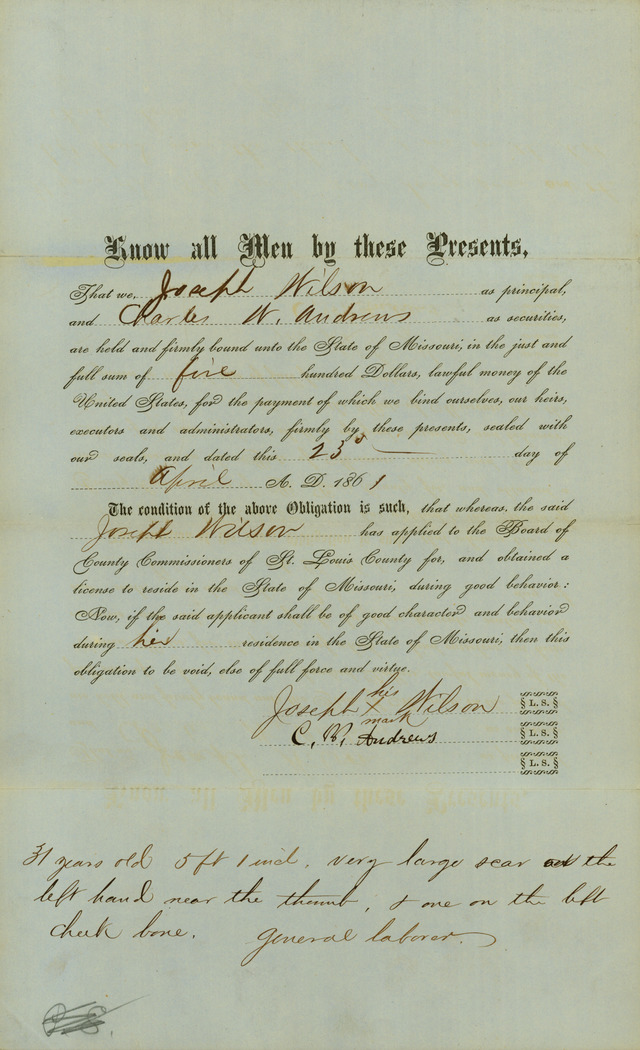 Know all Men by these Presents,
That we, Joseph Wilson as principal,
and Charles W. Andrews as securities,
are held and firmly bound unto the State of Missouri, in the just and
full sum of five hundred Dollars, lawful money of the
United States, for the payment of which we bind ourselves, our heirs,
executors and administrators, firmly by these presents, sealed with
our seals, and dated this 23d day of
April A. D. 1861
The condition of the above Obligation is such, that whereas, the said
Joseph Wilson has applied to the Board of
County Commissioners of St. Louis County for, and obtained a
license to reside in the State of Missouri, during good behavior:
Now, if the said applicant shall be of good character and behavior
during his residence in the State of Missouri, then this
obligation to be void, else of full force and virtue.
his
Joseph X Wilson § L. S. §
mark
C. W. Andrews § L. S. §
§ L. S. §
31 years old 5 ft 1 inch. very large scar on the
left hand near the thumb, & one on the left
cheek bone. general laborer.